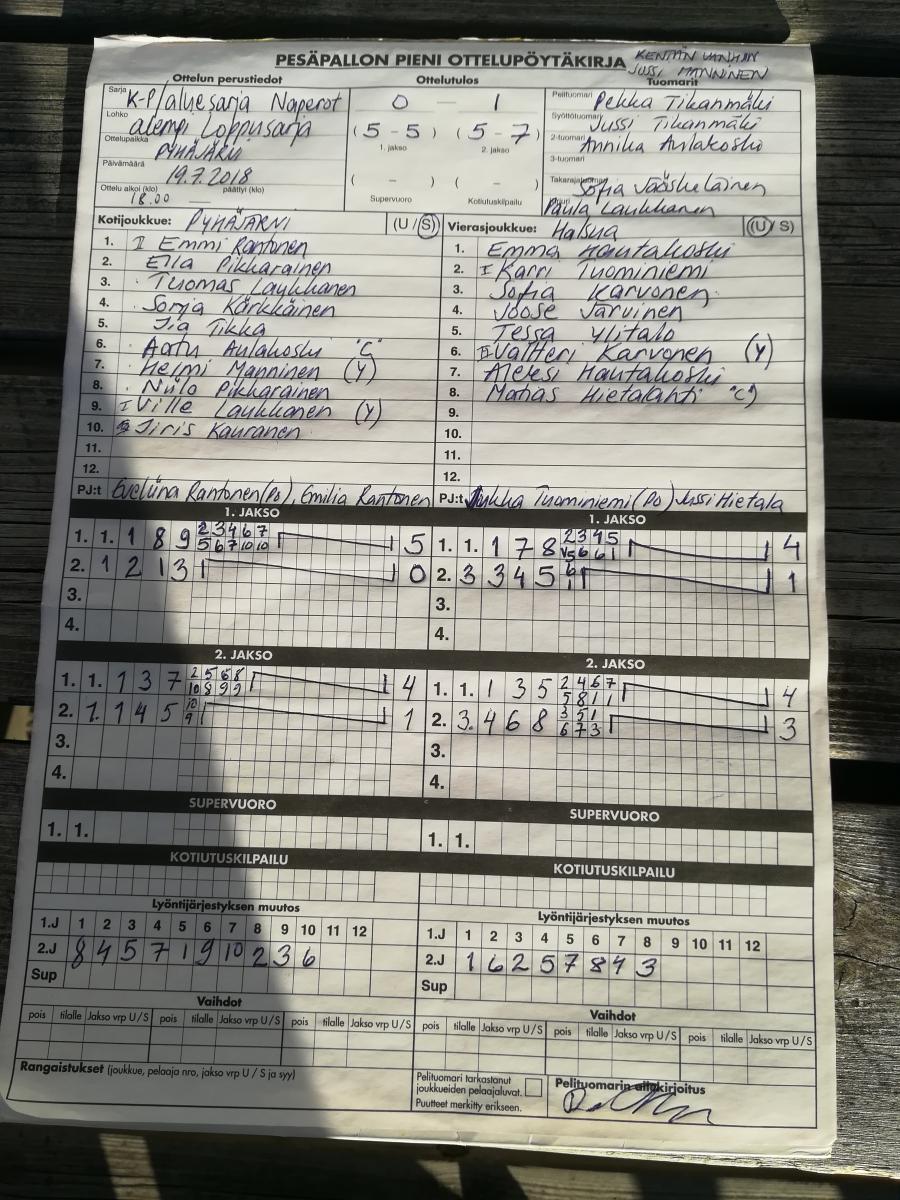 PESÄPALLON PIENI OTTELUPÖYTÄKIRJA
KENTÄN VANHIN
JUSSI MANNINEN
Ottelun perustiedot Ottelutulos Tuomarit
Sarja K-P/aluesarja Naperot
Lohko alempi Loppusarja
Ottelupaikka PYHÄJÄRVI
Päivämäärä 19.7.2018
Ottelu alkoi (klo) 18.00 päättyi (klo)
0 — 1
(5 - 5) (5 - 7)
1. jakso 2. jakso
( - ) ( - )
Supervuoro Kotiutuskilpailu
Pelituomari Pekka Tikanmäki
Syöttötuomari Jussi Tikanmäki
2-tuomari Annika Aulakoski
3-tuomari
Takarajatuomari Sofia Jääskeläinen
Paula Laukkanen
Kotijoukkue: PYHÄJÄRVI (U / S)
1. I Emmi Rantonen
2. Ella Pikkarainen
3. Tuomas Laukkanen
4. Sonja Kärkkäinen
5. Iia Tikka
6. Aatu Aulakoski "C"
7. Helmi Manninen (Y)
8. Niilo Pikkarainen
9. I Ville Laukkanen (Y)
10. Iiris Kauranen
11.
12.
PJ:t Eveliina Rantonen (Po), Emilia Rantonen
Vierasjoukkue: Halsua (U / S)
1. Emma Hautakoski
2. I Karri Tuominiemi
3. Sofia Karvonen
4. Joose Järvinen
5. Tessa Ylitalo
6. II Valtteri Karvonen (Y)
7. Aleksi Hautakoski
8. Matias Hietalahti "C"
9.
10.
11.
12.
PJ:t Jukka Tuominiemi (Po) Jussi Hietala
1. JAKSO
1. 1. 1 8 9 2 3 4 6 7 5
5 6 7 10 10
2. 1 2 1 3 1 0
3.
4.
1. JAKSO
1. 1. 1 7 8 2 3 4 5 4
5 6 6 1
2. 3 3 4 5 6 1
1
3.
4.
2. JAKSO
1. 1. 1 3 7 2 5 6 8 4
10 8 9 9
2. 1. 1 4 5 10 1
9
3.
4.
2. JAKSO
1. 1. 1 3 5 2 4 6 7 4
5 8 1 1
2. 3. 4 6 8 3 5 1 3
6 7 3
3.
4.
SUPERVUORO
1. 1.
SUPERVUORO
1. 1.
KOTIUTUSKILPAILU
KOTIUTUSKILPAILU
Lyöntijärjestyksen muutos
1.J 1 2 3 4 5 6 7 8 9 10 11 12
2.J 8 4 5 7 1 9 10 2 3 6
Sup
Lyöntijärjestyksen muutos
1.J 1 2 3 4 5 6 7 8 9 10 11 12
2.J 1 6 2 5 7 8 4 3
Sup
Vaihdot
pois tilalle Jakso vrp U/S pois tilalle Jakso vrp U/S pois tilalle Jakso vrp U/S
Vaihdot
pois tilalle Jakso vrp U/S pois tilalle Jakso vrp U/S pois tilalle Jakso vrp U/S
Rangaistukset (joukkue, pelaaja nro, jakso vrp U / S ja syy)
Pelituomari tarkastanut
joukkueiden pelaajaluvat.
Puutteet merkitty erikseen.
Pelituomarin allekirjoitus